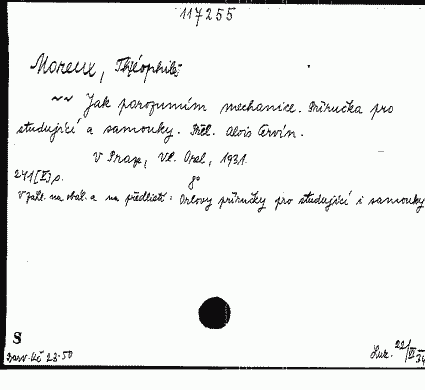 117255
Moreux, Théophile:
~~ Jak porozumím mechanice. Příručka pro
studující a samouky. Přel. Alois Červín.
V Praze, Vl. Orel, 1931.
241 [V] s. 8°
V záhl. na obál. a na předlistí: Orlovy příručky pro studující i samouky
S
brož. Kč 23·50
22/VI 34